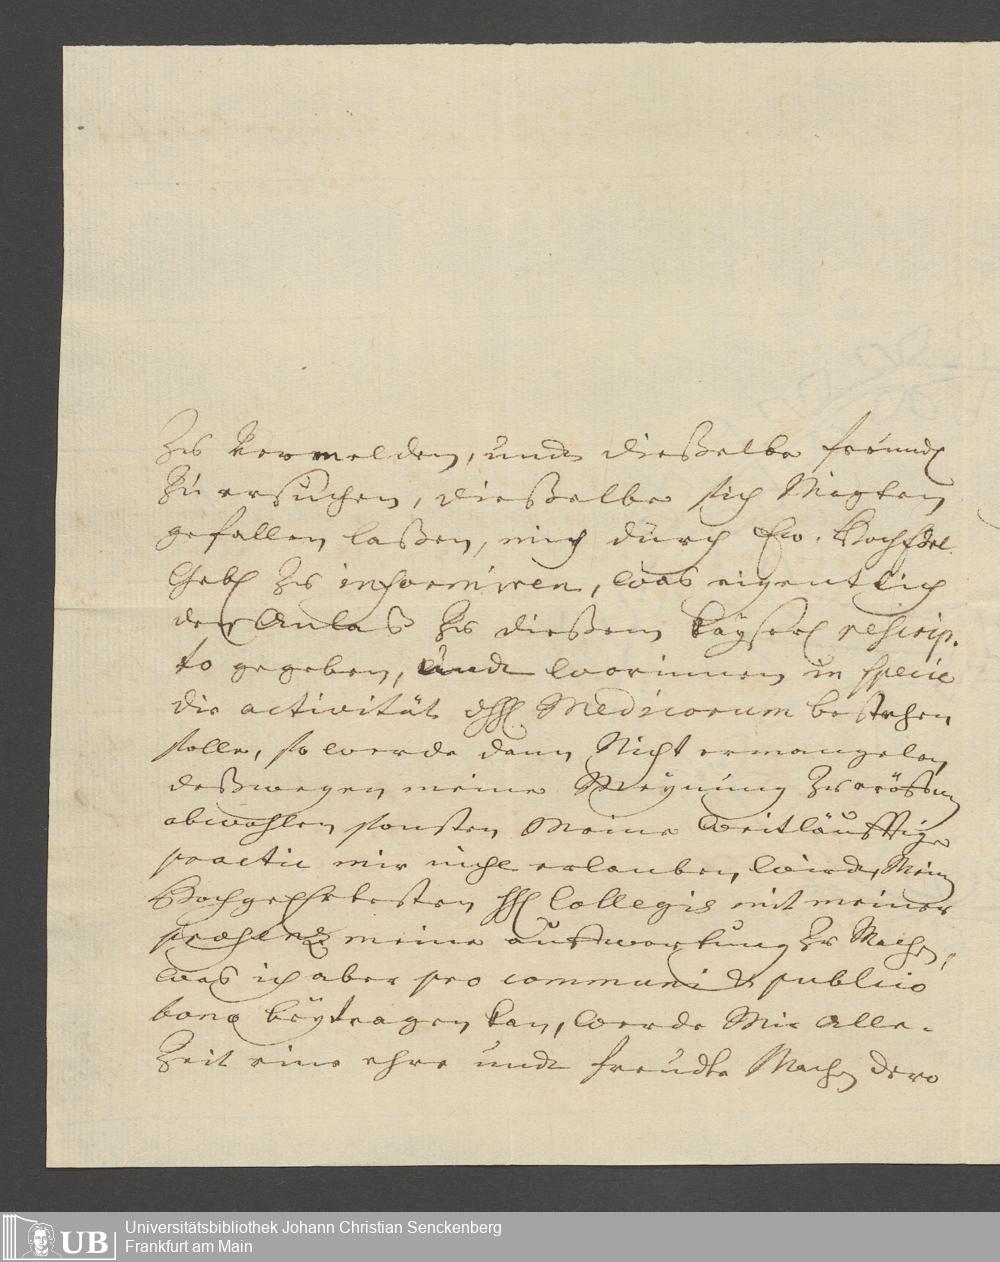 zu vermelden, und dieselbe freundl
zu ersuchen, dieselbe sich Mögten
gefallen laßen, mich durch Ew. HochEdel
Gebl zu informiren, was eigentlich
der Anlas zu diesem kaÿserl rescrip.
to gegeben, und worinnen in specie
die activität Medicorum bestehen
solle, so werde dann Nicht ermangelen
deßwegen meine Meÿnung zu eröffnen
obwohlen sonsten Meine Weitläufftige
practic mir nicht erlauben wird, Mein
Hochgeehrtesten Collegis mit meiner
meine aufwartung zu Machen,
was ich aber pro communi & publico
bono beÿtragen kan, werde Mir alle-
Zeit eine ehre und freude Machen dero
UB
Universitätsbibliothek Johann Christian Senckenberg
Frankfurt am Main